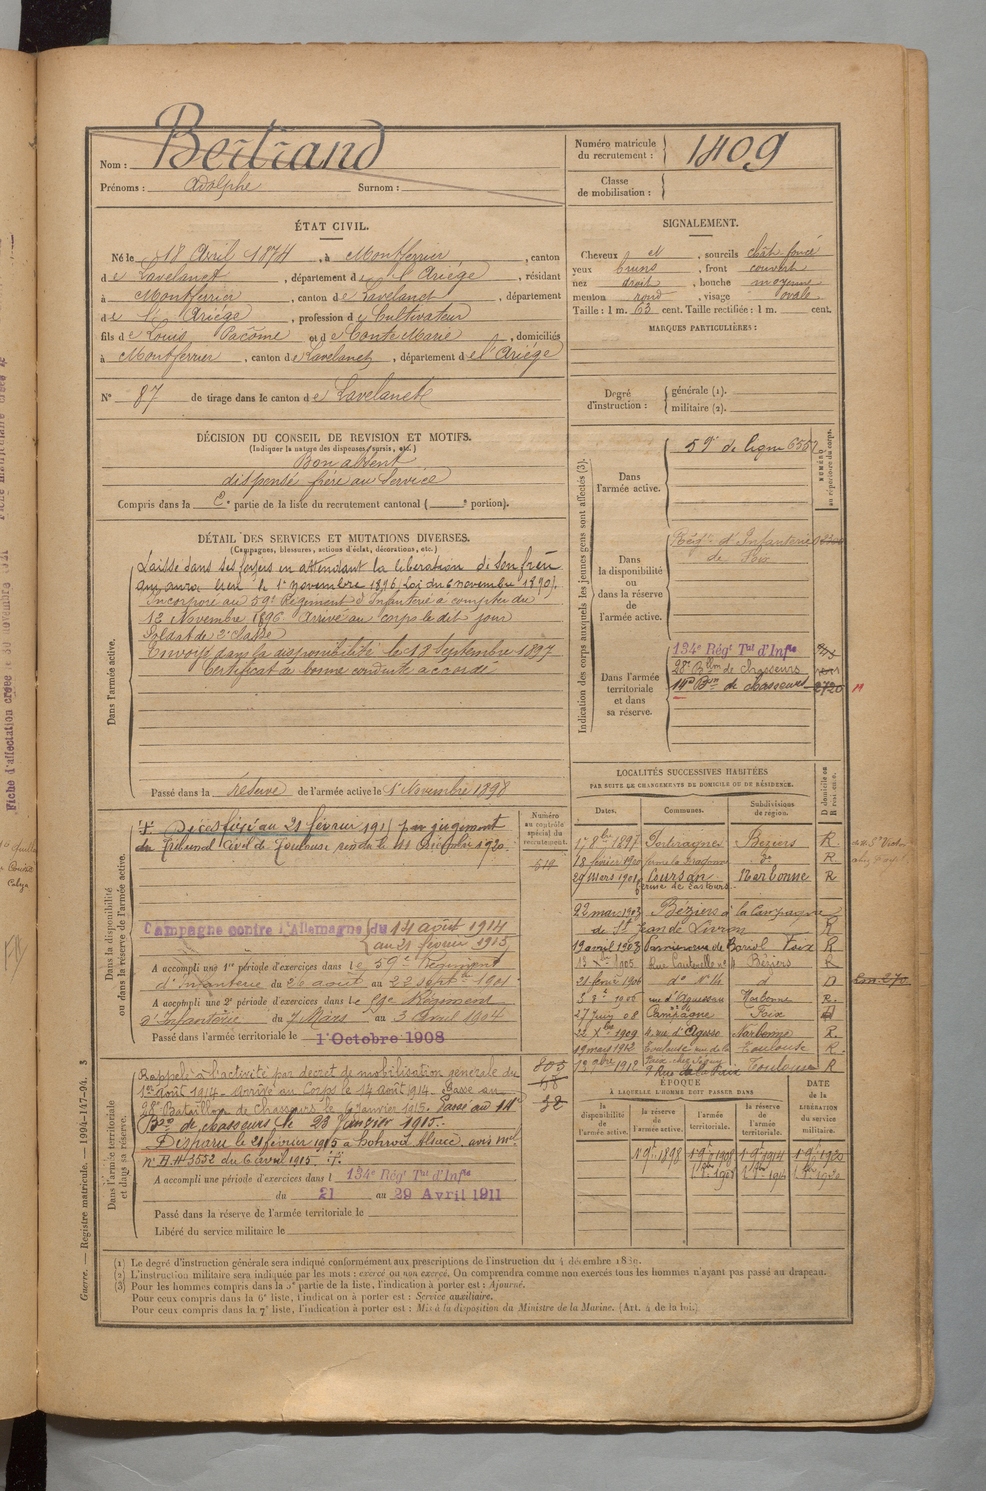 Nom : Bertrand
Prénoms : Adolphe Surnom :
Numéro matricule du recrutement : 1409
Classe de mobilisation :
ÉTAT CIVIL.
Né le 18 Avril 1874, à Montferrier, canton
de Lavelanet, département de l'Ariége, résidant
à Montferrier, canton de Lavelanet, département
de l'Ariége, profession de Cultivateur
fils de Louis Pacôme et de Conte Marie, domiciliés
à Montferrier, canton de Lavelanet, département de l'Ariége
N° 87 de tirage dans le canton de Lavelanet
SIGNALEMENT.
Cheveux et, sourcils chât foncé
yeux bruns, front couvert
nez droit, bouche moyenne
menton rond, visage ovale
Taille : 1 m. 63 cent. Taille rectifiée : 1 m. cent.
MARQUES PARTICULIÈRES :
Degré d'instruction : générale (1).
militaire (2).
DÉCISION DU CONSEIL DE REVISION ET MOTIFS.
(Indiquer la nature des dispenses, sursis, etc.)
Bon absent
dispensé frère au service
Compris dans la 2e partie de la liste du recrutement cantonal ( e portion).
DÉTAIL DES SERVICES ET MUTATIONS DIVERSES.
(Campagnes, blessures, actions d'éclat, décorations, etc.)
Dans l'armée active.
Laissé dans ses foyers en attendant la libération de son frère
qui aura lieu le 1er novembre 1896 (Loi du 6 novembre 1890).
Incorporé au 59e Régiment d'Infanterie à compter du
12 Novembre 1896 Arrivé au corps le dit jour
Soldat de 2e classe
Envoyé dans la disponibilité le 18 Septembre 1897
Certificat de bonne conduite accordé
Passé dans la réserve de l'armée active le 1er Novembre 1898
Indication des corps auxquels les jeunes gens sont affectés (3).
NUMÉRO au répertoire du corps.
Dans l'armée active.
59e de ligne
Dans la disponibilité ou dans la réserve de l'armée active.
Régt d'Infanterie
de Foix
Dans l'armée territoriale et dans sa réserve.
134e Régt Tal d'Infie
28e Bon de Chasseurs
14e Bon de chasseurs 2720
Dans la disponibilité ou dans la réserve de l'armée active.
Décès fixé au 21 février 1915 par jugement
du Tribunal Civil de Toulouse rendu le 11 1920.
Numéro au contrôle spécial du recrutement.
Campagne contre l'Allemagne du 14 août 1914
au 21 février 1915
A accompli une 1re période d'exercices dans le 59e Régiment
d'Infanterie du 26 août au 22 septbre 1901
A accompli une 2e période d'exercices dans le 59e Régiment
d'Infanterie du 7 Mars au 3 Avril 1904
Passé dans l'armée territoriale le 1er Octobre 1908
805
32
Dans l'armée territoriale et dans sa réserve.
Rappelé à l'activité par décret de mobilisation générale du
1er août 1914. Arrivé au Corps le 14 août 1914. Passé au
28e Bataillon de Chasseurs le 6 Janvier 1915. Passé au 14e
Bon de chasseurs le 23 Janvier 1915.
Disparu le 21 février 1915 à Alsace, avis mel
n° A.H 3532 du 6 avril 1915.
A accompli une période d'exercices dans l 134e Régt Tal d'Infie
du 21 au 29 Avril 1911
Passé dans la réserve de l'armée territoriale le
Libéré du service militaire le
LOCALITÉS SUCCESSIVES HABITÉES
PAR SUITE DE CHANGEMENTS DE DOMICILE OU DE RÉSIDENCE.
Dates. Communes. Subdivisions de région. D domicile ou R résidence.
17 8bre 1897 Portiragnes Béziers R
18 février 1900 do R
29 mars 1901 Coursan Narbonne R
22 mai 1903 Béziers à la Campagne
de St Jean de R
19 avril 1903 Foix R
13 1905 Béziers R
21 février 1906 do No 14 d D
1906 Narbonne R.
27 Juin 08 Campagne Foix
22 Xbre 1909 Narbonne R.
19 mars 1912 Toulouse Toulouse R.
1912 Toulouse R
ÉPOQUE
À LAQUELLE L'HOMME DOIT PASSER DANS
DATE de la LIBÉRATION du service militaire.
la disponibilité de l'armée active. la réserve de l'armée active. l'armée territoriale. la réserve de l'armée territoriale.
1er 9bre 1898 1er 9bre 1908 1er 9bre 1914 1er 9bre 1920
(1) Le degré d'instruction générale sera indiqué conformément aux prescriptions de l'instruction du 4 décembre 1889.
(2) L'instruction militaire sera indiquée par les mots : exercé ou non exercé. On comprendra comme non exercés tous les hommes n'ayant pas passé au drapeau.
(3) Pour les hommes compris dans la 5e partie de la liste, l'indication à porter est : Ajourné.
Pour ceux compris dans la 6e liste, l'indication à porter est : Service auxiliaire.
Pour ceux compris dans la 7e liste, l'indication à porter est : Mis à la disposition du Ministre de la Marine. (Art. 4 de la loi.)
Guerre. — Registre matricule. — 1994-147-94.